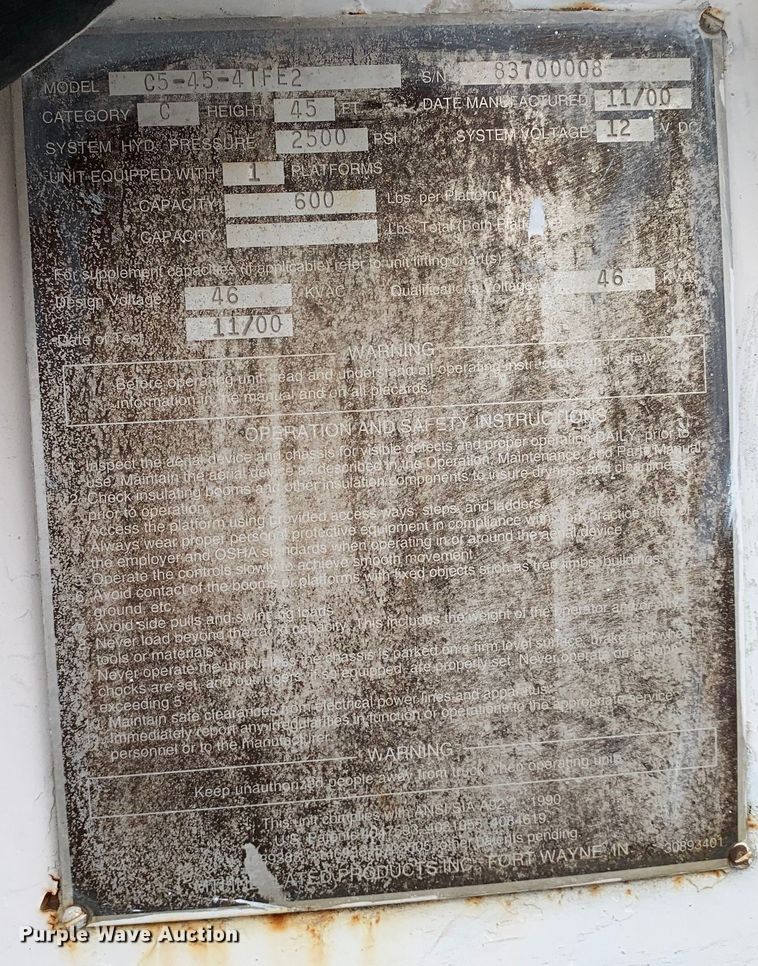 MODEL C5-45-41FE2 S/N 83700008
CATEGORY C HEIGHT 45 FT. DATE MANUFACTURED 11/00
SYSTEM HYD. PRESSURE 2500 PSI SYSTEM VOLTAGE 12 V DC
UNIT EQUIPPED WITH 1 PLATFORMS
CAPACITY 600 Lbs. per Platform
CAPACITY Lbs. Total (Both
For supplement capacities (if applicable) refer to unit lifting chart(s)
Design Voltage 46 KVAC Qualifications Voltage 46 KVAC
Date of Test 11/00
WARNING
Before operating unit, read and understand all operating instructions and safety
information in the manual and on all placards.
OPERATION AND SAFETY INSTRUCTIONS
Inspect the aerial device and chassis for visible defects and proper operation DAILY, prior to
use. Maintain the aerial device as described in the Operation, Maintenance, and Parts Manual
2. Check insulating booms and other insulation components to insure dryness and cleanliness
prior to operation.
Access the platform using provided access ways, steps, and ladders.
Always wear proper personal protective equipment in compliance with
the employer and OSHA standards when operating in or around the aerial device
Operate the controls slowly to achieve smooth movement.
Avoid contact of the booms or platforms with fixed objects such as tree limbs, buildings,
ground, etc.
Avoid side pulls and swinging loads.
Never load beyond the rated capacity. This includes the weight of the operator and
tools or materials.
Never operate the unit unless the chassis is parked on a firm level surface, brake and wheel
chocks are set, and outriggers, if so equipped, are properly set. Never operate on a slope
exceeding 5
Maintain safe clearances from electrical power lines and apparatus.
Immediately report any irregularities in function or operations to the appropriate service
personnel or to the manufacturer.
WARNING
Keep unauthorized people away from truck when operating unit.
This unit complies with ANSI/SIA A92.2 - 1990
U.S. Patents 4084619.
other patents pending.
PRODUCTS INC., FORT WAYNE, IN 30893401
Purple Wave Auction